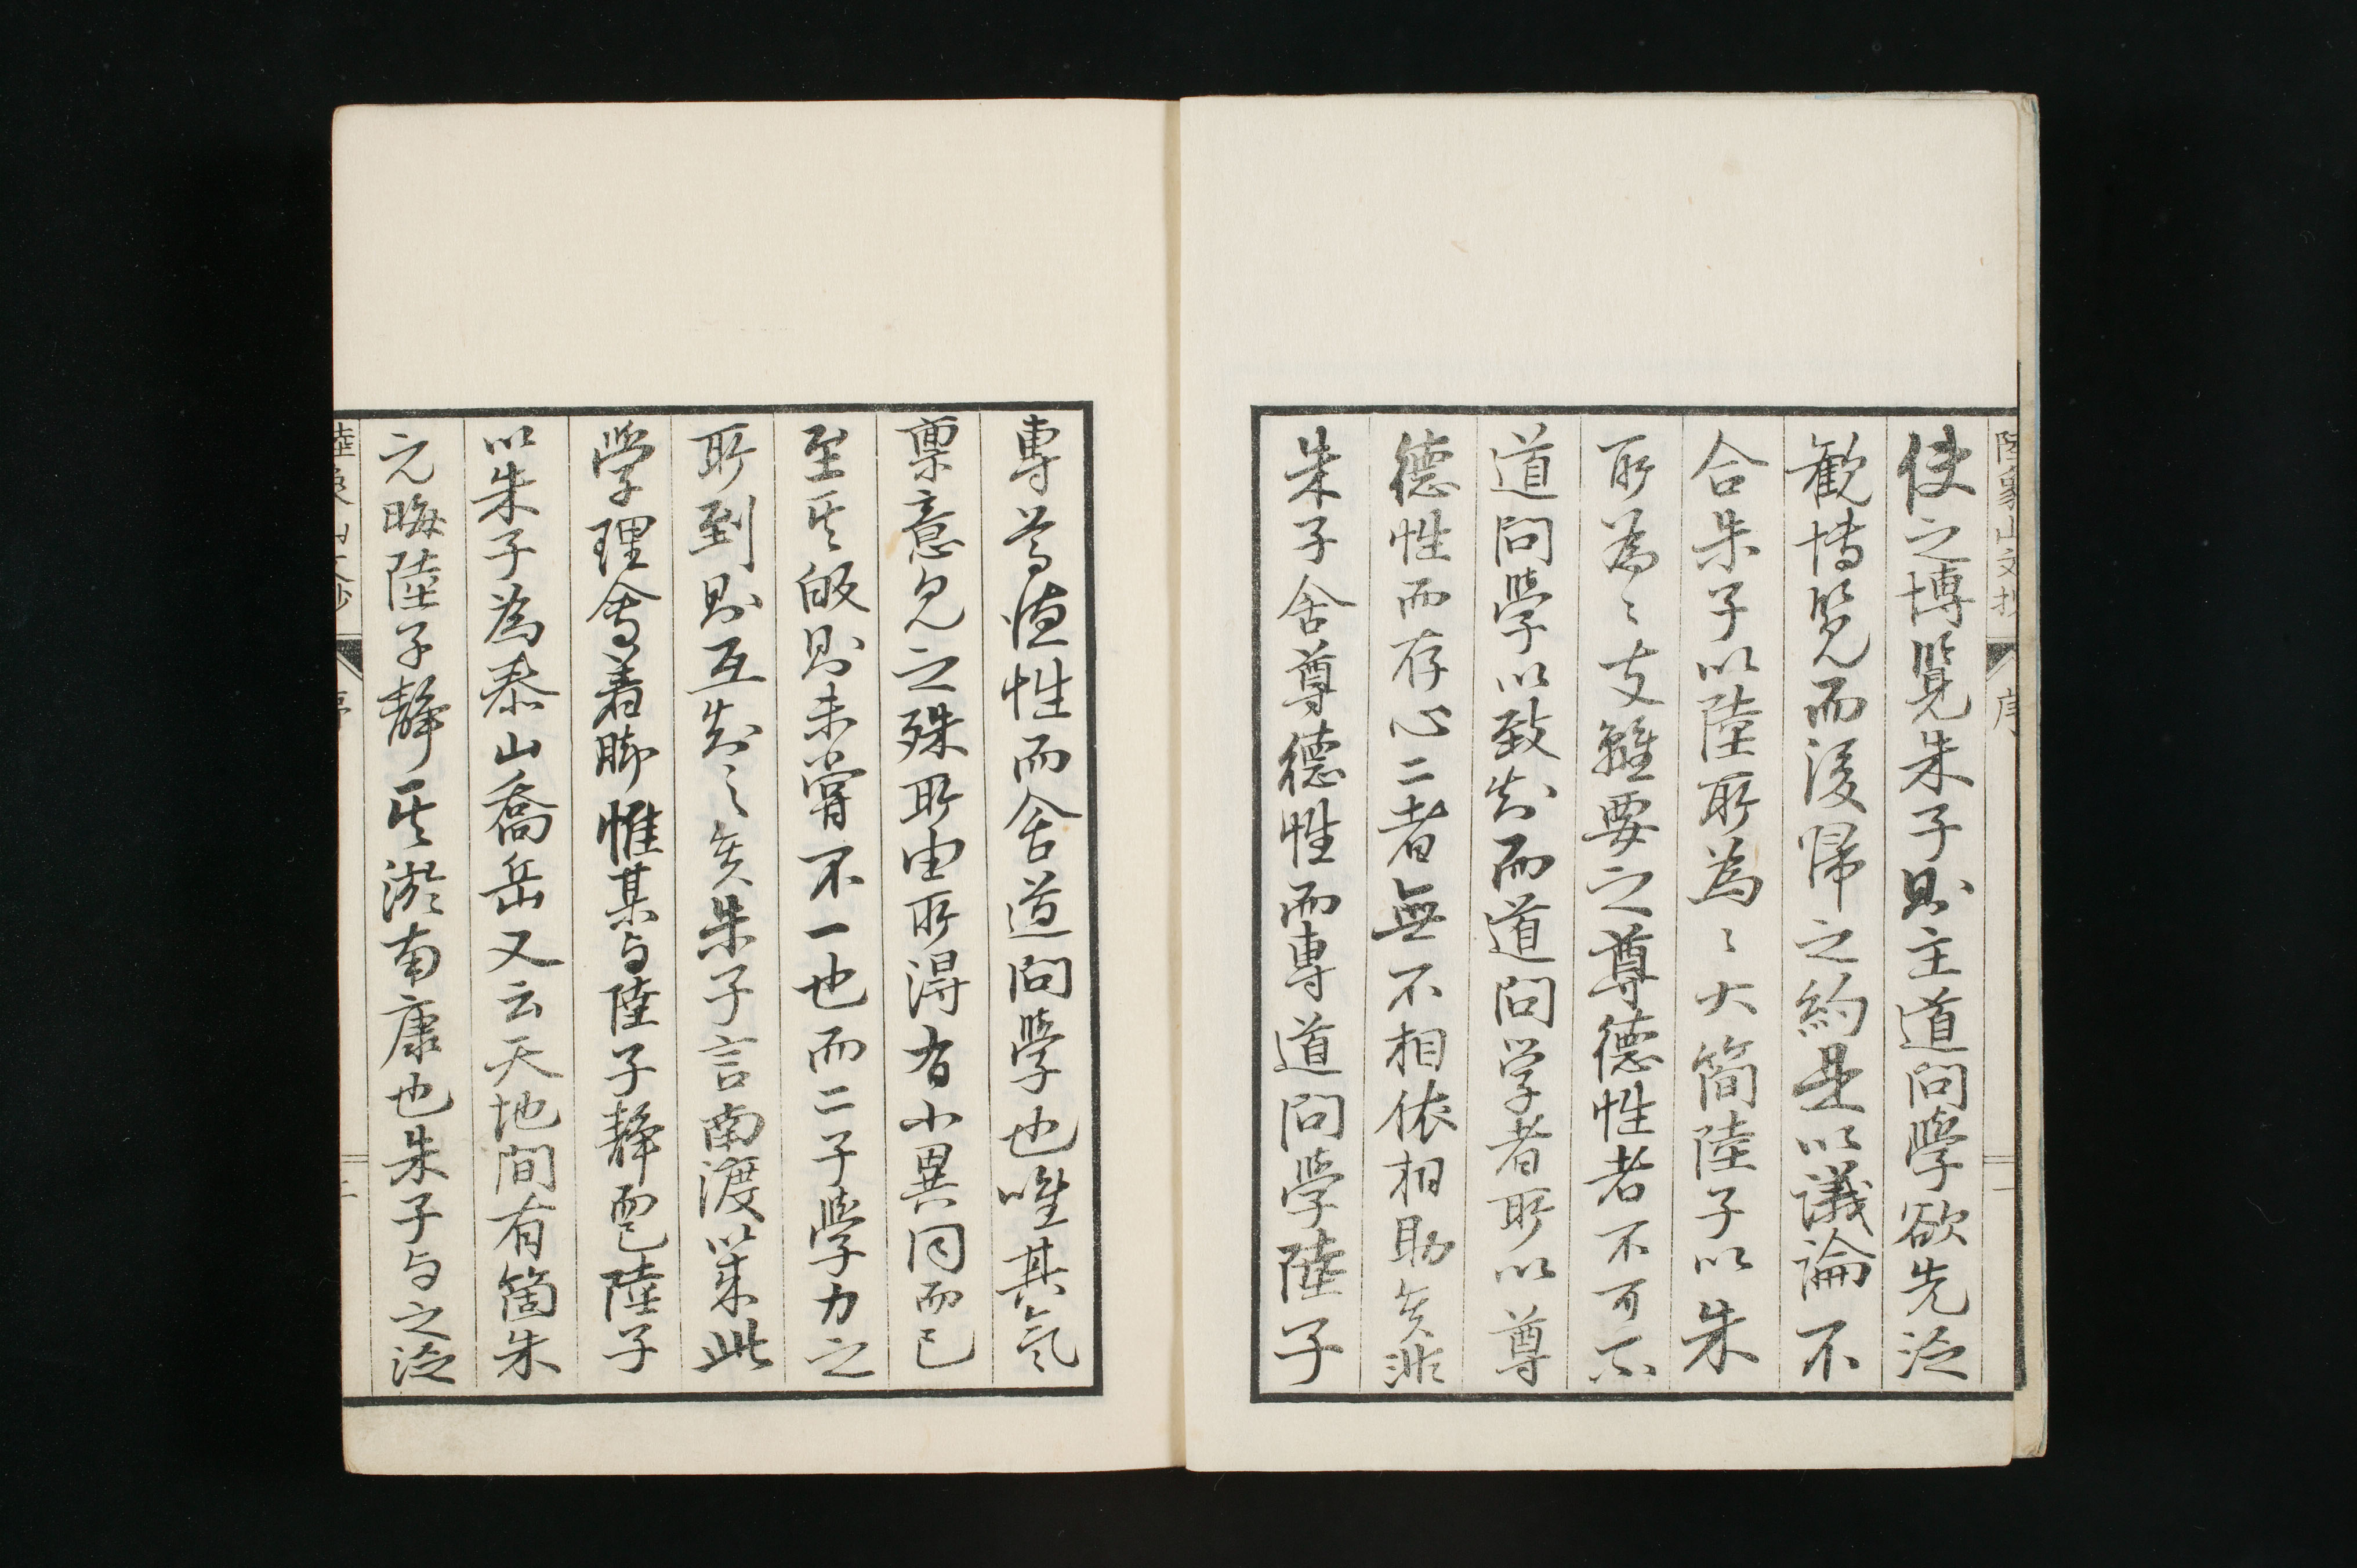 陸象山文抄
序
一
使之博覽朱子則主道問學欲先泛
観博覧而後帰之約是以議論不
合朱子以陸所為〻大簡陸子以朱
所為〻支離要之尊德性者不可不
道問學以致知而道問学者所以尊
德性而存心二者無不相依相助矣非
朱子舍尊德性而專道問學陸子
專尊德性而舍道問學也唯其氣
稟意見之殊所由所得有小異同而已
至其帰則未嘗不一也而二子學力之
所到則互知之矣朱子言南渡以来此
学理會着脚惟某与陸子静耳已陸子
以朱子為泰山喬岳又云天地間有箇朱
元晦陸子静其涖南康也朱子与之泛
陸象山文抄
序
二